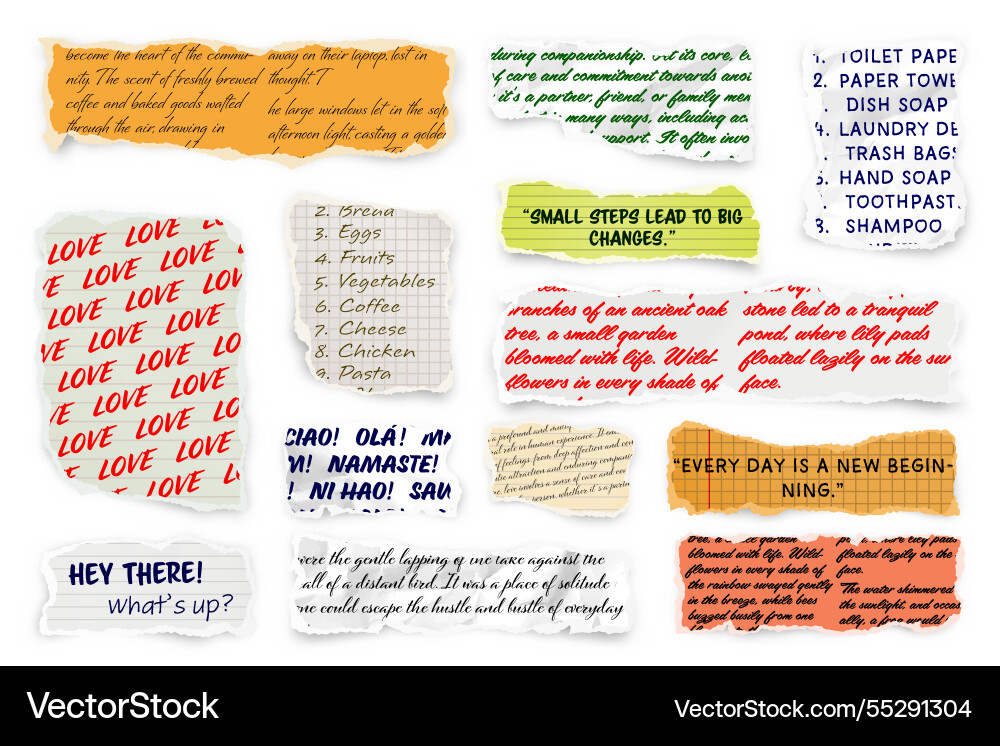 become the heart of the commu-
nity. The scent of freshly brewed
coffee and baked goods wafted
through the air, drawing in
away on their laptop, lost in
thought. T
he large windows let in the soft
afternoon light, casting a golden
during companionship. its core,
of care and commitment towards
it's a partner, friend, or family
many ways, including
support. It often
1. TOILET PAPE
2. PAPER TOWE
DISH SOAP
4. LAUNDRY DE
TRASH BAGS
HAND SOAP
TOOTHPAST
8. SHAMPOO
LOVE LOVE
LOVE LOVE
LOVE LOVE LOVE
LOVE LOVE
LOVE LOVE LO
VE LOVE LOVE
LOVE LOVE LO
VE LOVE LOVE
LOVE LOVE LO
VE LOVE LOVE
LOVE
2. Bread
3. Eggs
4. Fruits
5. Vegetables
6. Coffee
7. Cheese
8. Chicken
9. Pasta
“SMALL STEPS LEAD TO BIG
CHANGES.”
branches of an ancient oak
tree, a small garden
bloomed with life. Wild-
flowers in every shade of
stone led to a tranquil
pond, where lily pads
floated lazily on the sur
face.
CIAO! OLÁ!
M! NAMASTE!
! NI HAO! SAW
a profound and many
role in human experience. It
feelings, from deep affection and
attraction and enduring
love involves a sense of care and
person, whether it's a
“EVERY DAY IS A NEW BEGIN-
NING.”
HEY THERE!
what's up?
were the gentle lapping of the lake against the
call of a distant bird. It was a place of solitude
one could escape the hustle and bustle of everyday
tree, a garden
bloomed with life. Wild-
flowers in every shade of
the rainbow swayed gently
in the breeze, while bees
buzzed busily from one
where lily pads
floated lazily on the
face.
The water shimmered
the sunlight, and occas
ally, a frog would
VectorStock
VectorStock.com/55291304